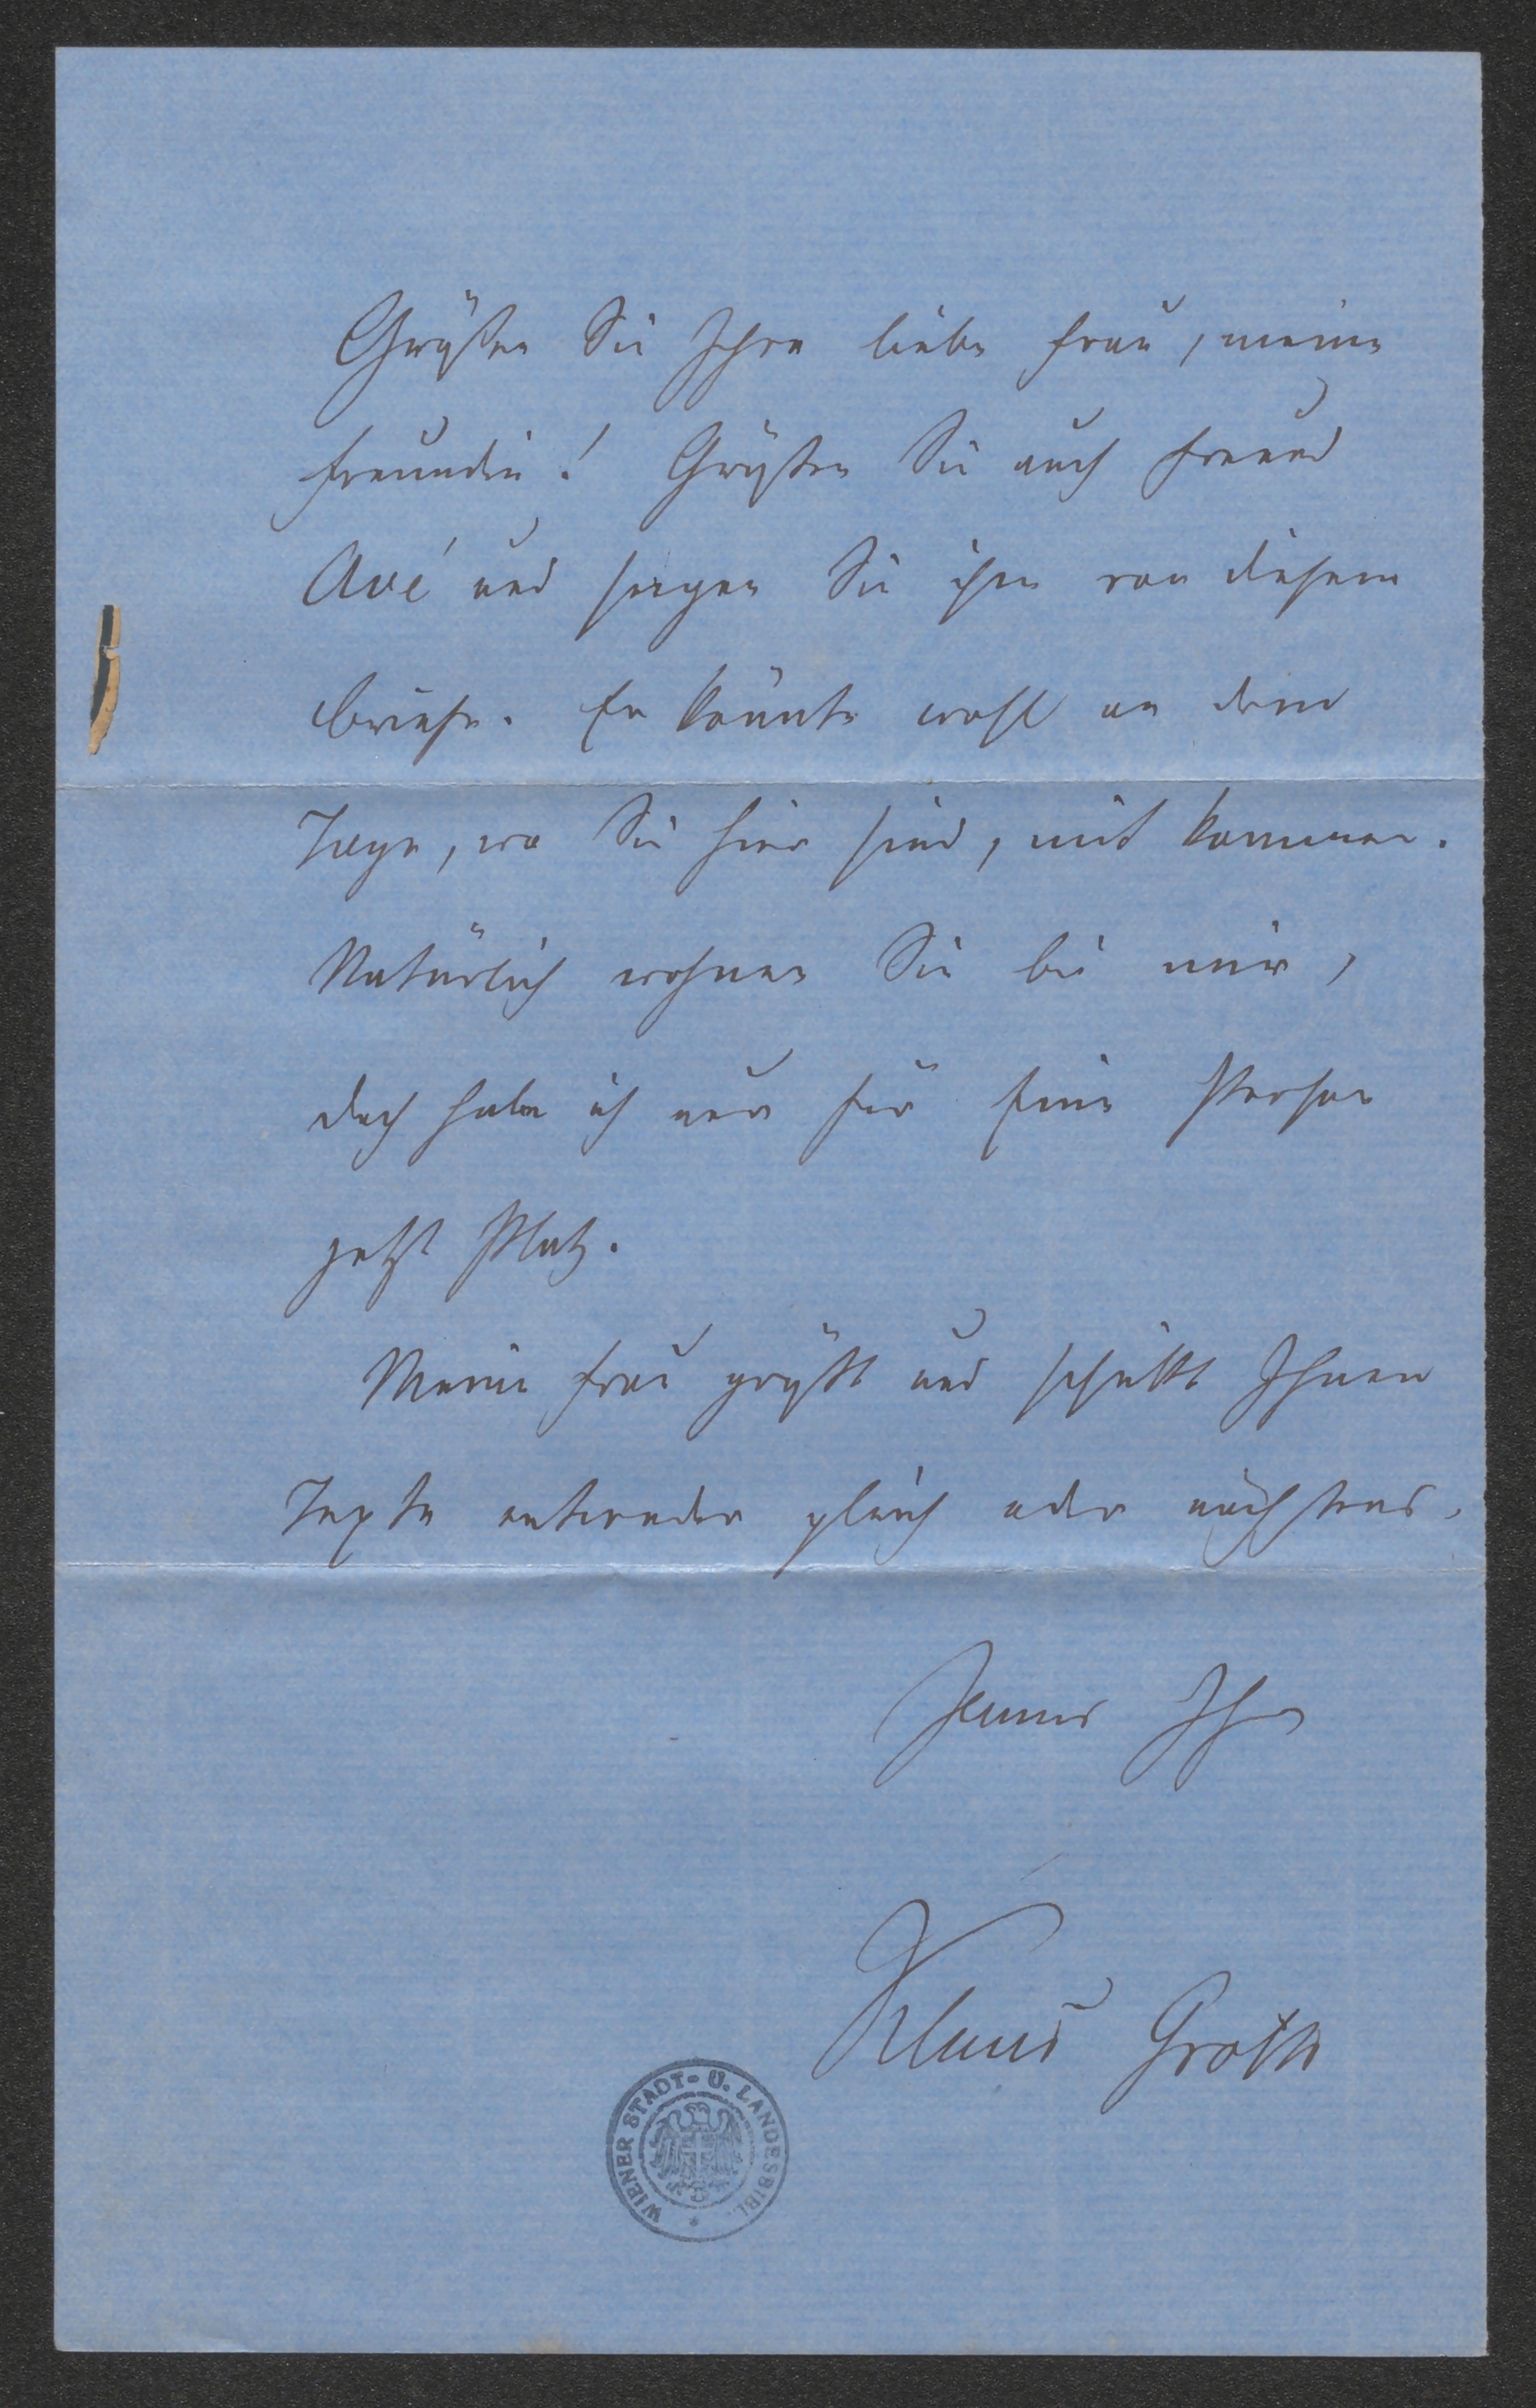 Grüßen Sie Ihre liebe Frau, meine
Freundin! Grüßen Sie auch Freund
Avé und sagen Sie ihm von diesem
Briefe. Er könnte wohl an dem
Tage, wo Sie hier sind, mit kommen.
Natürlich wohnen Sie bei mir,
doch habe ich nur für Eine Person
jetzt Platz.
Meine Frau grüßt und schickt Ihnen
Texte entweder gleich oder nächstens.
Immer Ihr
Klaus Groth
WIENER STADT- U. LANDESBIBL. *